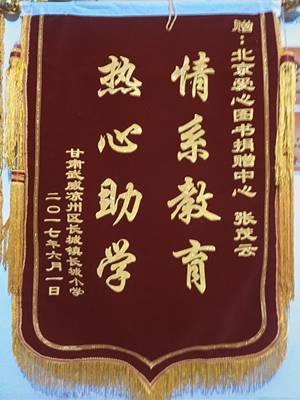 赠：北京爱心图书捐赠中心 张茂云
情系教育
热心助学
甘肃武威凉州区长城镇长城小学
二〇一七年六月一日